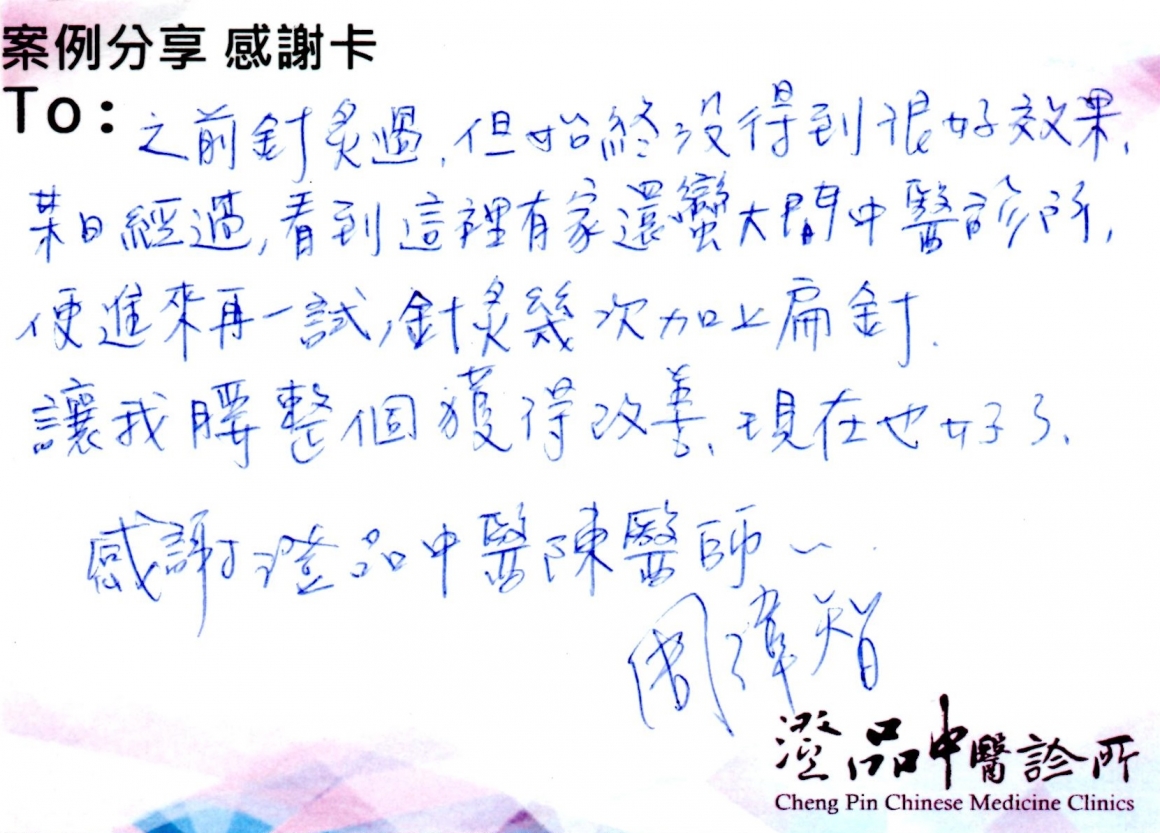 案例分享 感謝卡
To: 之前針炙過,但始終沒得到很好效果,
某日經過,看到這裡有家還蠻大間中醫診所,
便進來再一試,針炙幾次加上扁針.
讓我腰整個獲得改善、現在也好了、
感謝澄品中醫陳醫師~
周瑋智
澄品中醫診所
Cheng Pin Chinese Medicine Clinics